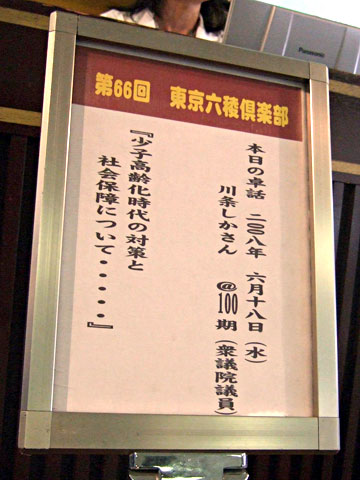 Panasonic
第66回 東京六稜倶楽部
本日の卓話 二〇〇八年 六月十八日(水)
川条しかさん @100期(衆議院議員)
『少子高齢化時代の対策と
社会保障について・・・・・』